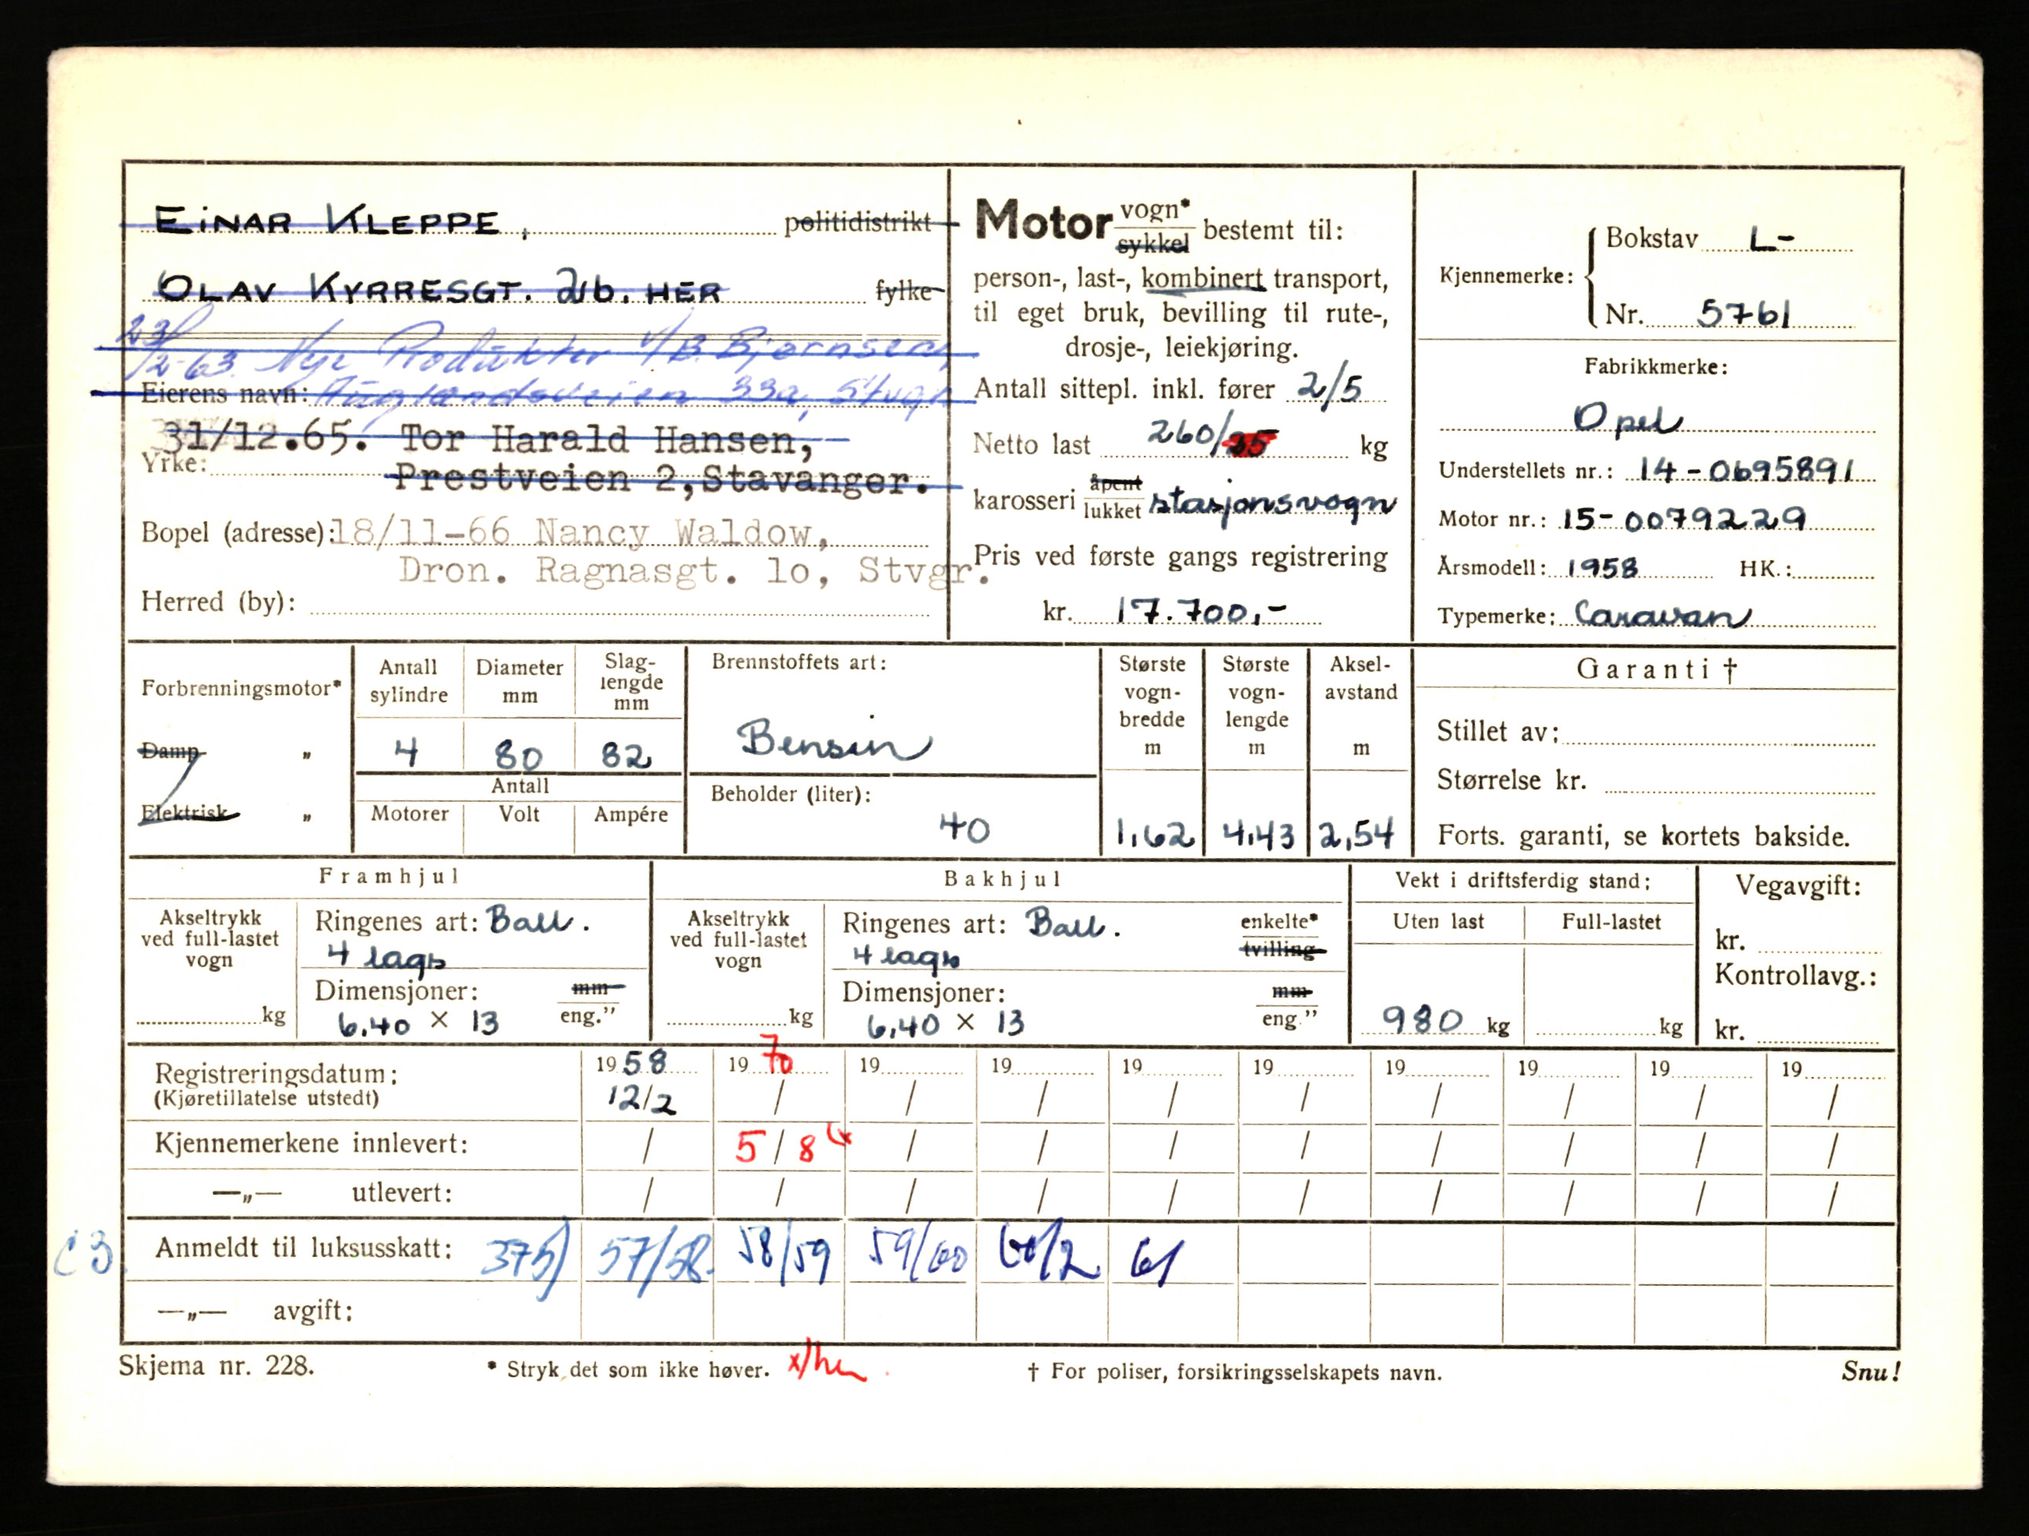 EINAR KLEPPE, politidistrikt
OLAV KYRRESGT. 21b. HER fylke
23/2-63. Nye Produkter v/B. Bjørnsen,
Eierens navn: Auglendsveien 33a, Stvgr
31/12.65. Tor Harald Hansen,
Yrke: Prestveien 2, Stavanger.
Bopel (adresse): 18/11-66 Nancy Waldow,
Dron. Ragnasgt. 1o, Stvgr.
Herred (by):
Motor vogn* sykkel bestemt til:
person-, last-, kombinert transport,
til eget bruk, bevilling til rute-,
drosje-, leiekjøring.
Antall sittepl. inkl. fører 2/5
Netto last 260/35 kg
karosseri åpent lukket stasjonsvogn
Pris ved første gangs registrering
kr. 17.700,-
Kjennemerke: Bokstav L-
Nr. 5761
Fabrikkmerke:
Opel
Understellets nr.: 14-0695891
Motor nr.: 15-0079229
Årsmodell: 1958 HK.:
Typemerke: Caravan
Forbrenningsmotor*
Damp "
Elektrisk "
Antall sylindre 4
Diameter mm 80
Slaglengde mm 82
Antall
Motorer Volt Ampére
Brennstoffets art:
Bensin
Beholder (liter):
40
Største vogn-bredde m 1,62
Største vogn-lengde m 4,43
Aksel-avstand m 2,54
Garanti †
Stillet av:
Størrelse kr.
Forts. garanti, se kortets bakside.
Framhjul
Akseltrykk ved full-lastet vogn kg
Ringenes art: Ball.
4 lags
Dimensjoner: mm eng."
6.40 × 13
Bakhjul
Akseltrykk ved full-lastet vogn kg
Ringenes art: Ball. enkelte* tvilling
4 lags
Dimensjoner: mm eng."
6.40 × 13
Vekt i driftsferdig stand:
Uten last Full-lastet
980 kg kg
Vegavgift:
kr.
Kontrollavg.:
kr.
Registreringsdatum: 1958 1970 19 19 19 19 19 19 19 19
(Kjøretillatelse utstedt) 12/2 / / / / / / / / /
Kjennemerkene innlevert: / 5/8 / / / / / / / /
—„— utlevert: / / / / / / / / / /
C3. Anmeldt til luksusskatt: 375) 57/58. 58/59 59/60 60/2 61
—„— avgift:
Skjema nr. 228. * Stryk det som ikke høver. † For poliser, forsikringsselskapets navn. Snu!